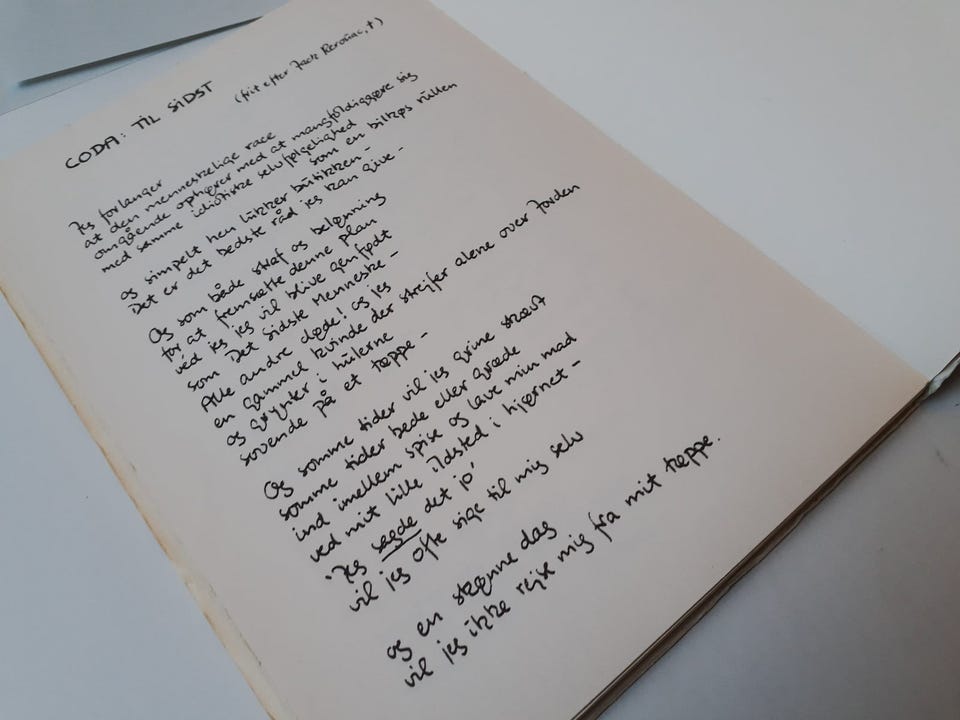 CODA: TIL SIDST
(frit efter Jack Kerouac, †)
Jeg forlanger
at den menneskelige race
omgående ophører med at mangfoldiggøre sig
med samme idiotiske selvfølgelighed
som en bilkøs rullen
og simpelt hen lukker butikken –
Det er det bedste råd jeg kan give –
Og som både straf og belønning
for at fremsætte denne plan
véd jeg jeg vil blive genfødt
som Det Sidste Menneske –
Alle andre døde! og jeg
en gammel kvinde der strejfer alene over Jorden
og grynter i hulerne
sovende på et tæppe –
Og somme tider vil jeg grine stærkt
somme tider bede eller græde
ind imellem spise og lave min mad
ved mit lille ildsted i hjørnet –
'Jeg sagde det jo'
vil jeg ofte sige til mig selv
og en skønne dag
vil jeg ikke rejse mig fra mit tæppe.